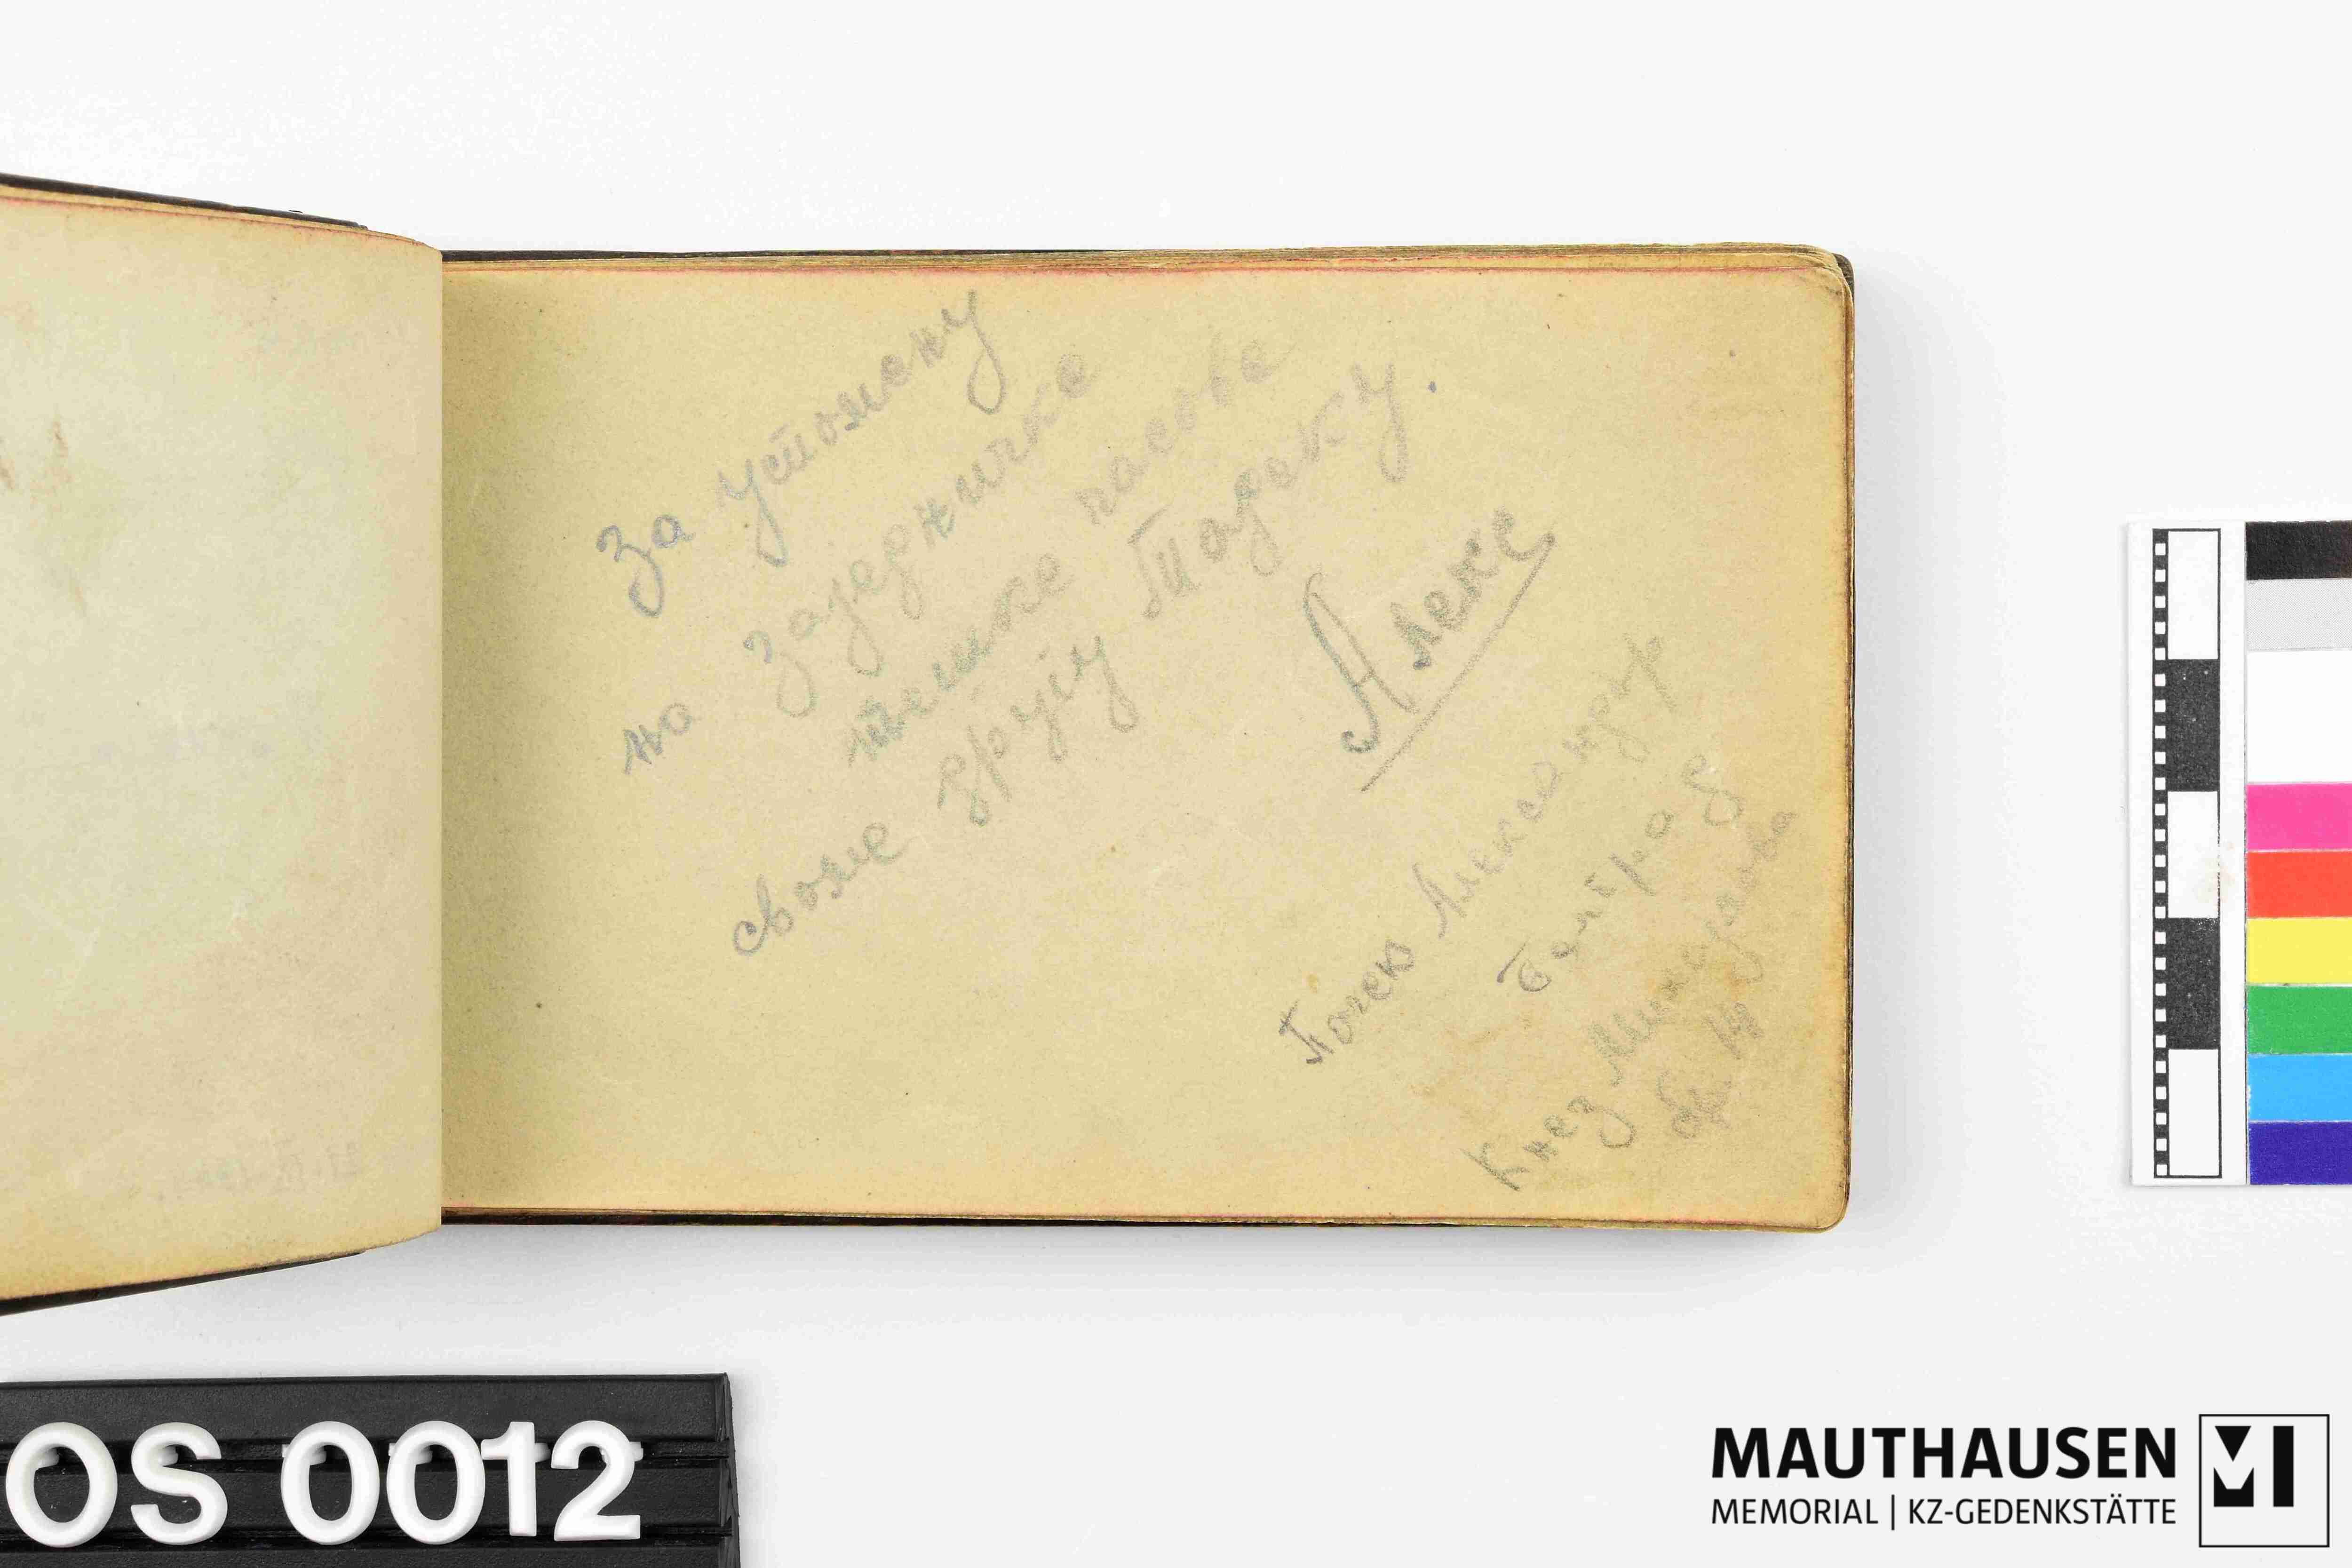 За успомену
на заједничке
тешке часове
своме другу Тодеку.
Алекс
Александар
Београд
Кнез Михајлова
бр. 14
OS 0012
MAUTHAUSEN
MEMORIAL | KZ-GEDENKSTÄTTE